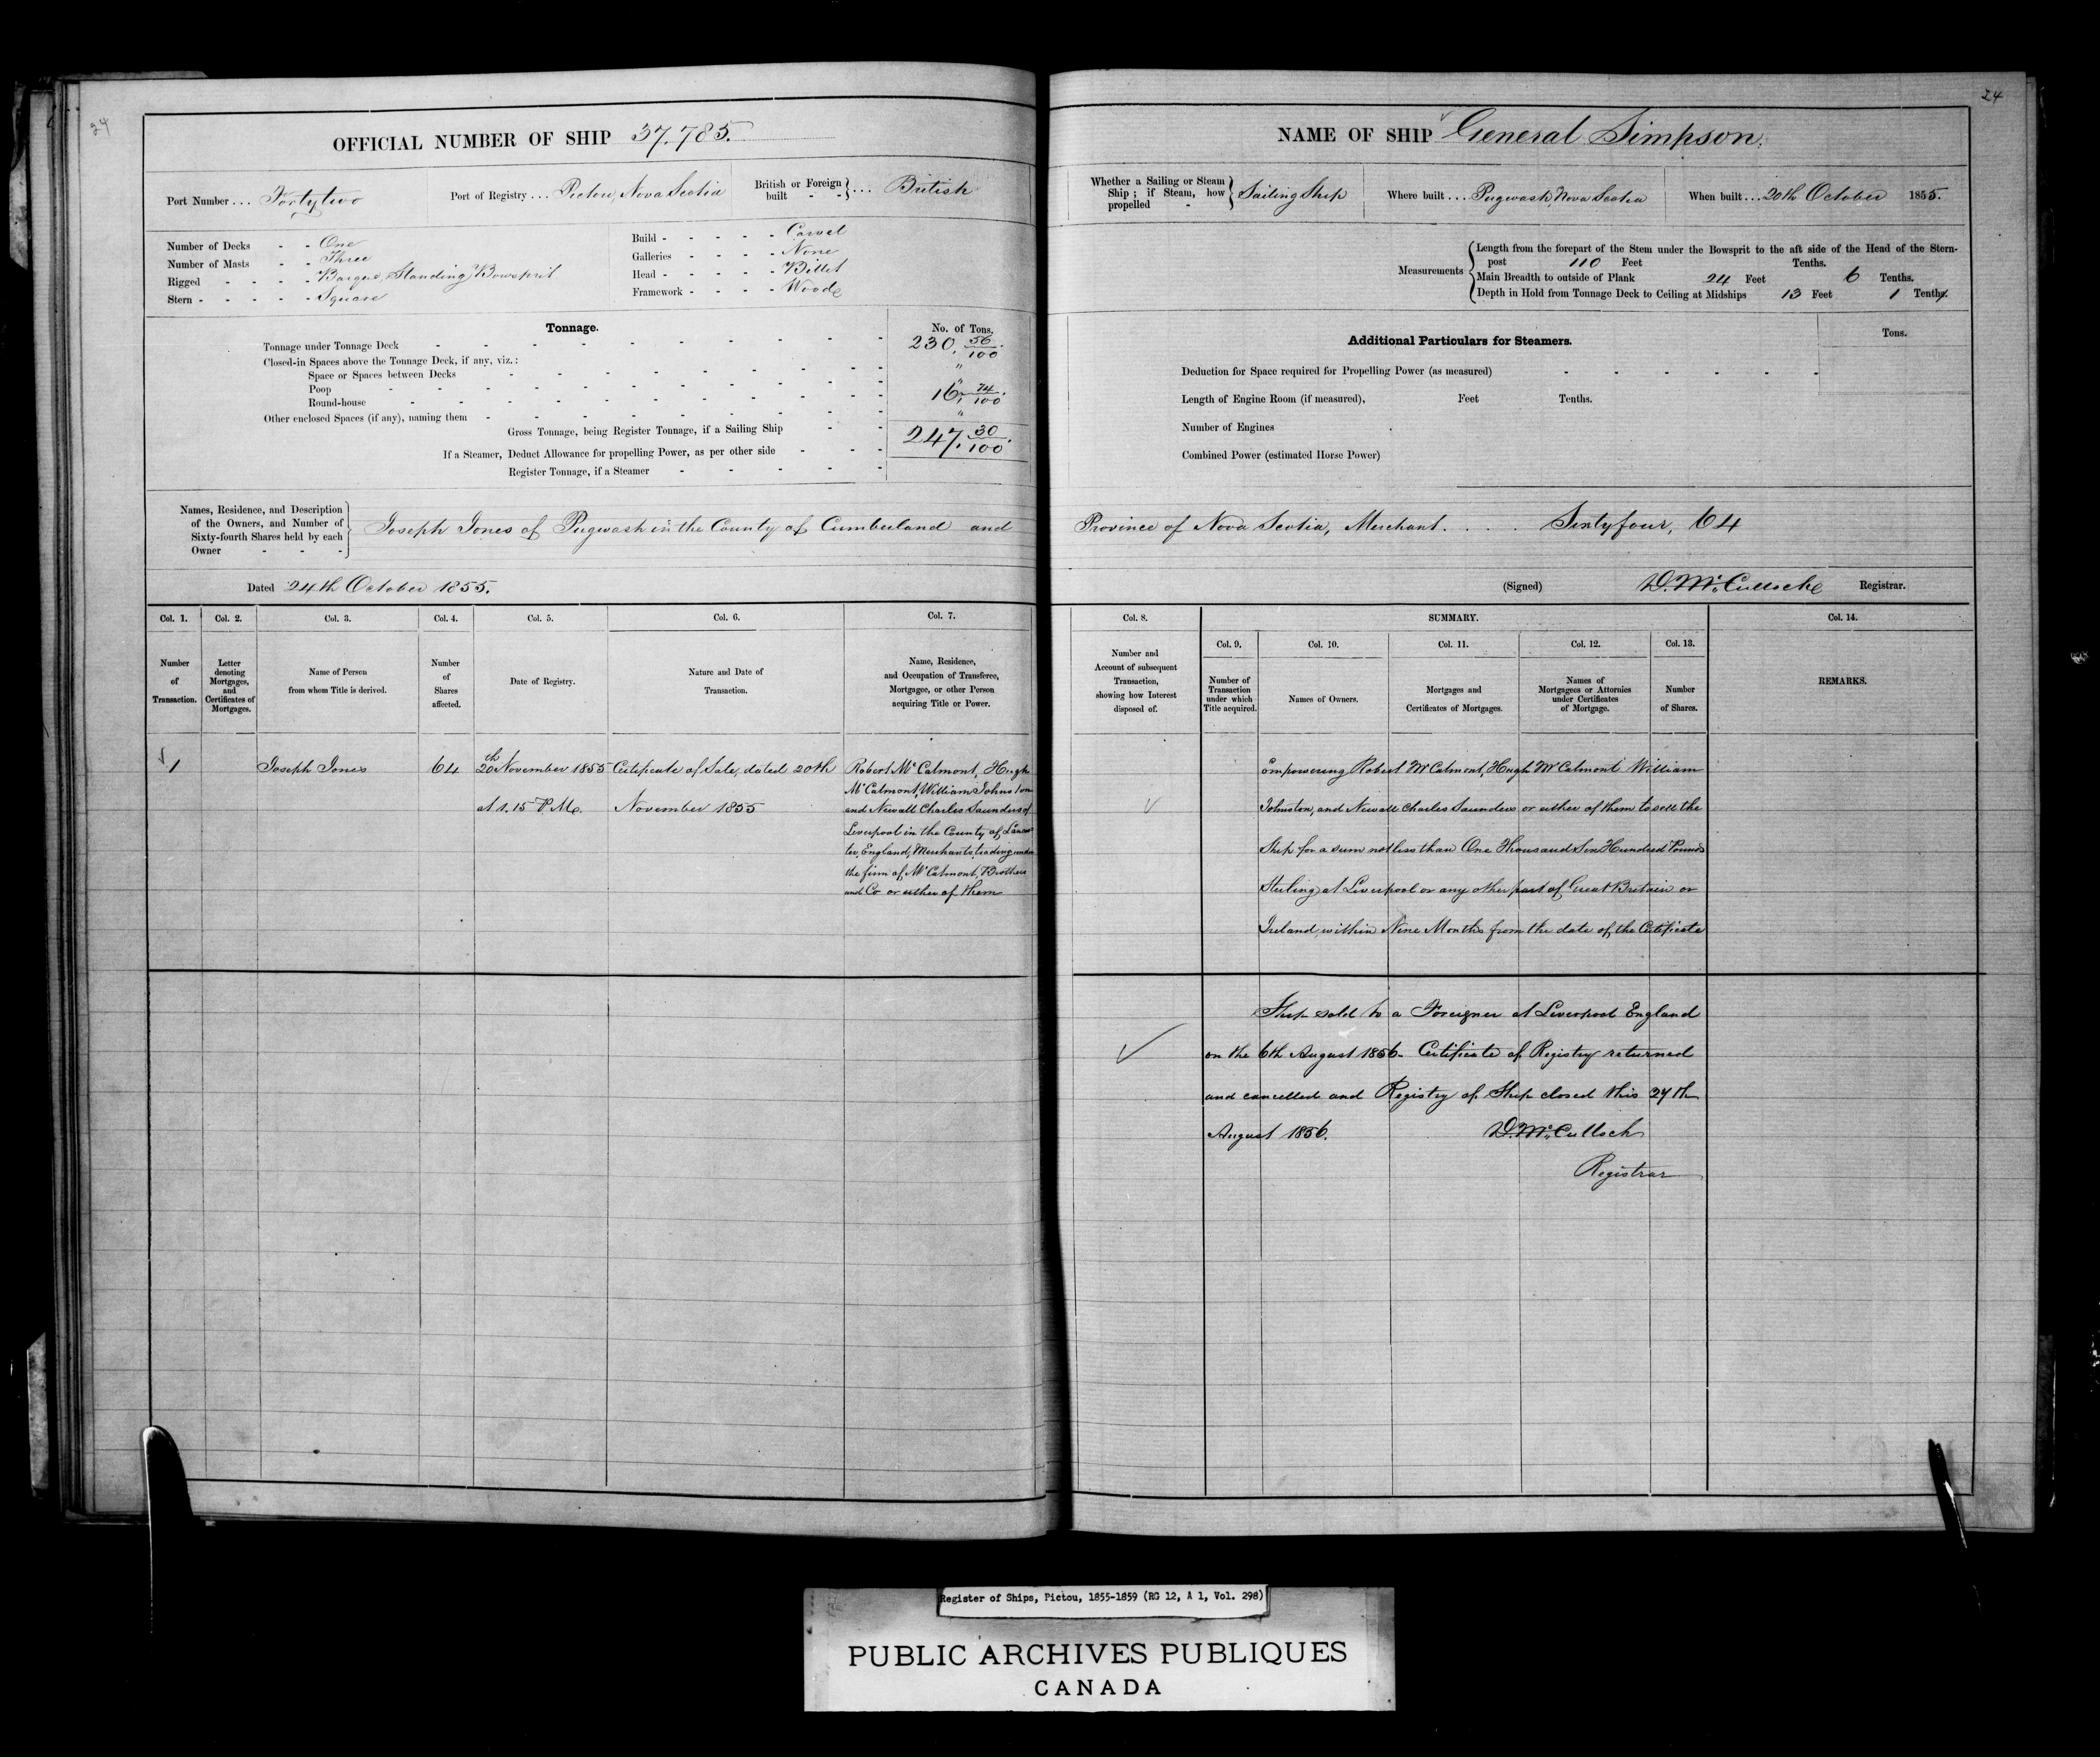 24
OFFICIAL NUMBER OF SHIP 37.785.
Port Number ... Fortytwo Port of Registry ... Pictou, Nova Scotia British or Foreign built - - } ... British
Number of Decks - - One
Number of Masts - - Three
Rigged - - - - - Barque, Standing Bowsprit
Stern - - - - - Square
Build - - - - - Carvel
Galleries - - - - None
Head - - - - - Billet
Framework - - - - Wood
Tonnage. No. of Tons.
Tonnage under Tonnage Deck 230. 56/100
Closed-in Spaces above the Tonnage Deck, if any, viz.: "
Space or Spaces between Decks "
Poop 16. 74/100
Round-house
Other enclosed Spaces (if any), naming them "
Gross Tonnage, being Register Tonnage, if a Sailing Ship 247. 30/100
If a Steamer, Deduct Allowance for propelling Power, as per other side
Register Tonnage, if a Steamer
Names, Residence, and Description
of the Owners, and Number of
Sixty-fourth Shares held by each
Owner - - - -
Joseph Jones of Pugwash in the County of Cumberland and
Dated 24th October 1855.
Col. 1. Col. 2. Col. 3. Col. 4. Col. 5. Col. 6. Col. 7.
Number of Transaction.
Letter denoting Mortgages, and Certificates of Mortgages.
Name of Person from whom Title is derived.
Number of Shares affected.
Date of Registry.
Nature and Date of Transaction.
Name, Residence, and Occupation of Transferee, Mortgagee, or other Person acquiring Title or Power.
1
Joseph Jones
64
20th November 1855
at 1.15 P.M.
Certificate of Sale, dated 20th
November 1855
Robert McCalmont, Hugh
McCalmont, William Johnston
and Newall Charles Saunders of
Liverpool in the County of Lancas-
ter, England, Merchants trading under
the firm of McCalmont, Brothers
and Co or either of them
24
NAME OF SHIP General Simpson.
Whether a Sailing or Steam Ship; if Steam, how propelled - } Sailing Ship Where built ... Pugwash, Nova Scotia When built ... 20th October 1855.
Measurements
Length from the forepart of the Stem under the Bowsprit to the aft side of the Head of the Stern-
post 110 Feet Tenths.
Main Breadth to outside of Plank 24 Feet 6 Tenths.
Depth in Hold from Tonnage Deck to Ceiling at Midships 13 Feet 1 Tenths.
Additional Particulars for Steamers. Tons.
Deduction for Space required for Propelling Power (as measured)
Length of Engine Room (if measured), Feet Tenths.
Number of Engines
Combined Power (estimated Horse Power)
Province of Nova Scotia, Merchant. . . . Sixtyfour, 64
(Signed) D. McCulloch Registrar.
Col. 8. SUMMARY. Col. 14.
Col. 9. Col. 10. Col. 11. Col. 12. Col. 13.
Number and Account of subsequent Transaction, showing how Interest disposed of.
Number of Transaction under which Title acquired.
Names of Owners.
Mortgages and Certificates of Mortgages.
Names of Mortgagees or Attornies under Certificates of Mortgage.
Number of Shares.
REMARKS.
Empowering Robert McCalmont, Hugh McCalmont William
Johnston, and Newall Charles Saunders or either of them to sell the
Ship for a sum not less than One Thousand Six Hundred Pounds
Sterling at Liverpool or any other part of Great Britain or
Ireland, within Nine Months from the date of the Certificate
Ship sold to a Foreigner at Liverpool England
on the 6th August 1856. Certificate of Registry returned
and cancelled and Registry of Ship closed this 27th
August 1856. D. McCulloch
Registrar
Register of Ships, Pictou, 1855-1859 (RG 12, A 1, Vol. 298)
PUBLIC ARCHIVES PUBLIQUES
CANADA